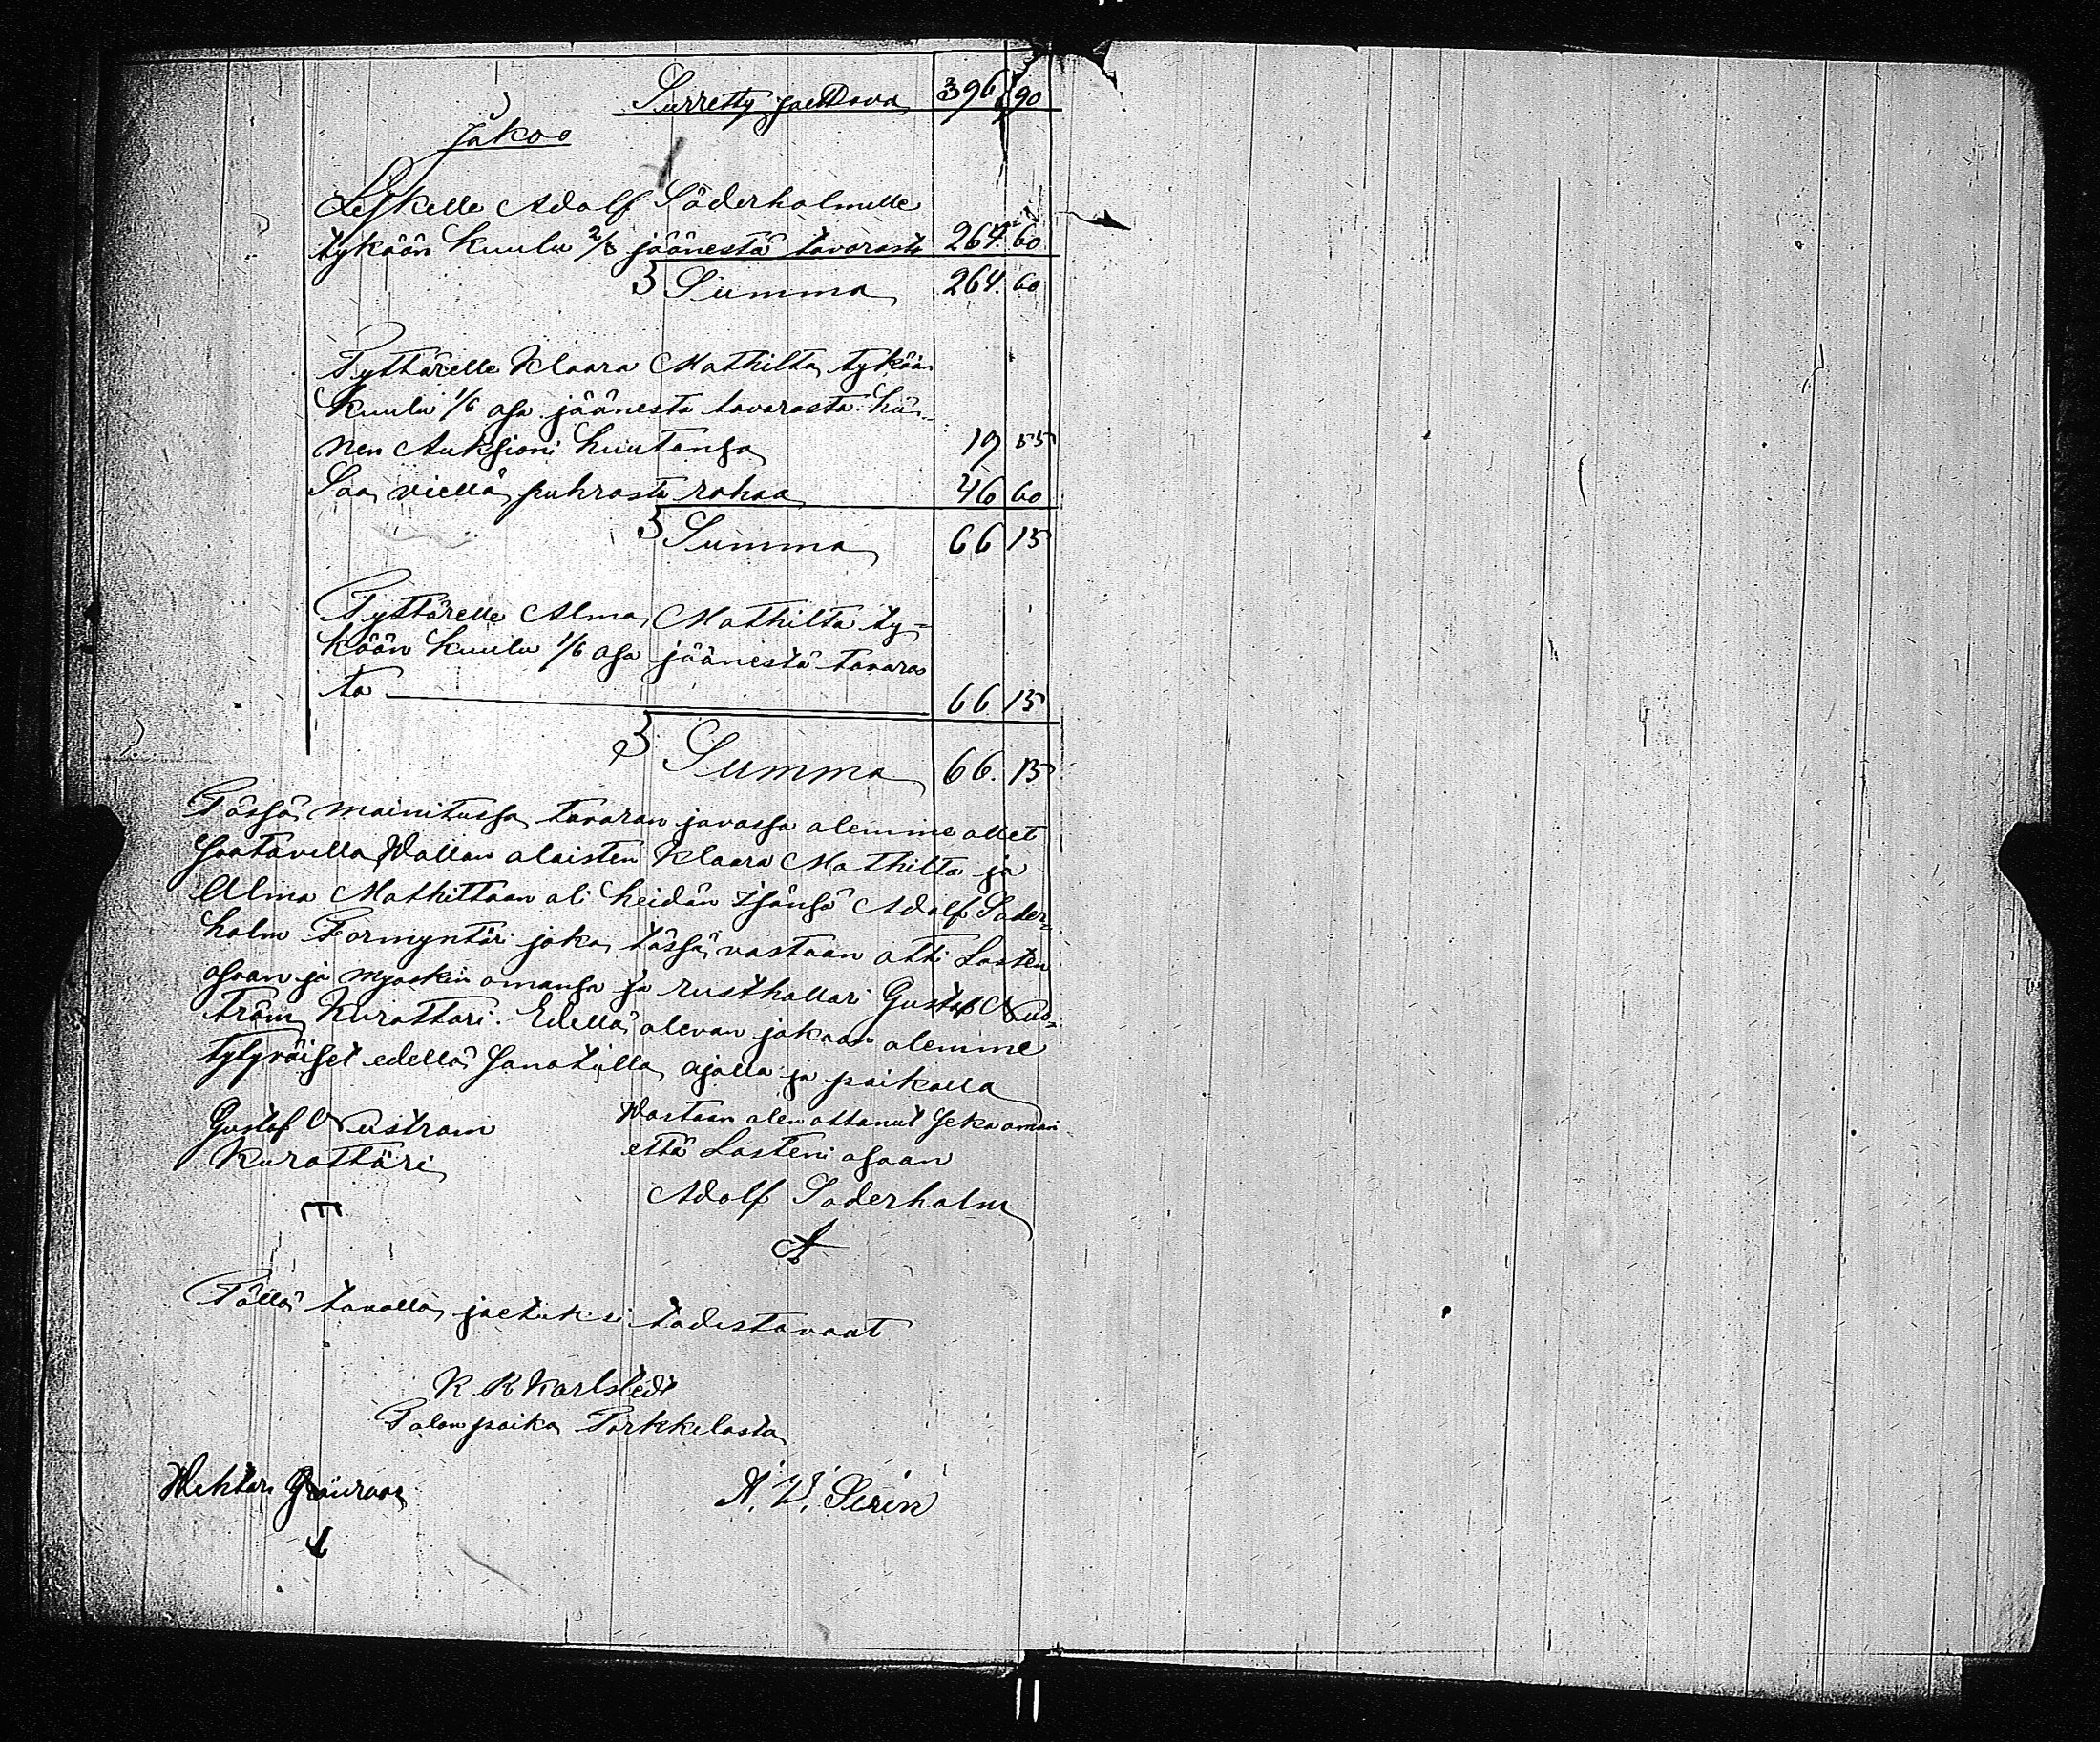 Siirretty jaettava 396 90
Jako
Leskelle Adolf Söderholmille
tyköön kuulu 2/3 jäänestä tavarasta 264. 60
Summa 264. 60
Tyttärelle Klaara Mathilta tyköön
kuulu 1/6 osa jäänestä tavarasta hä-
nen Auksioni huutonsa 19 55
Saa viellä puhrasta rahaa 46 60
Summa 66 15
Tyttärelle Alma Mathilta ty-
köön kuulu 1/6 osa jäänestä tavaras
ta 66. 15
Summa 66. 15
Tässä mainitussa tavaran javossa olemme ollet
saatavella Wallan alaisten Klaara Mathilta ja
Alma Mathiltaan oli heidän Isänsä Adolf Söder-
holm Formyntäri joka tässä vastaan otti Lasten
osaan ja myöskin omansa ja rusthollari Gustaf Nus-
tröm Kurattari. Edellä olevan jakoon olemme
tytyväiset edellä sanotulla ajalla ja paikalla
Gustaf Nuström
Kurattäri
Wastaan olen ottanut seka omani
että Lasteni osaan
Adolf Söderholm
Tällä tavalla jaetuksi todistavaat
K. R Karlstedt
Talonpoika Torkkilasta
Wihtori
A. W. Siren